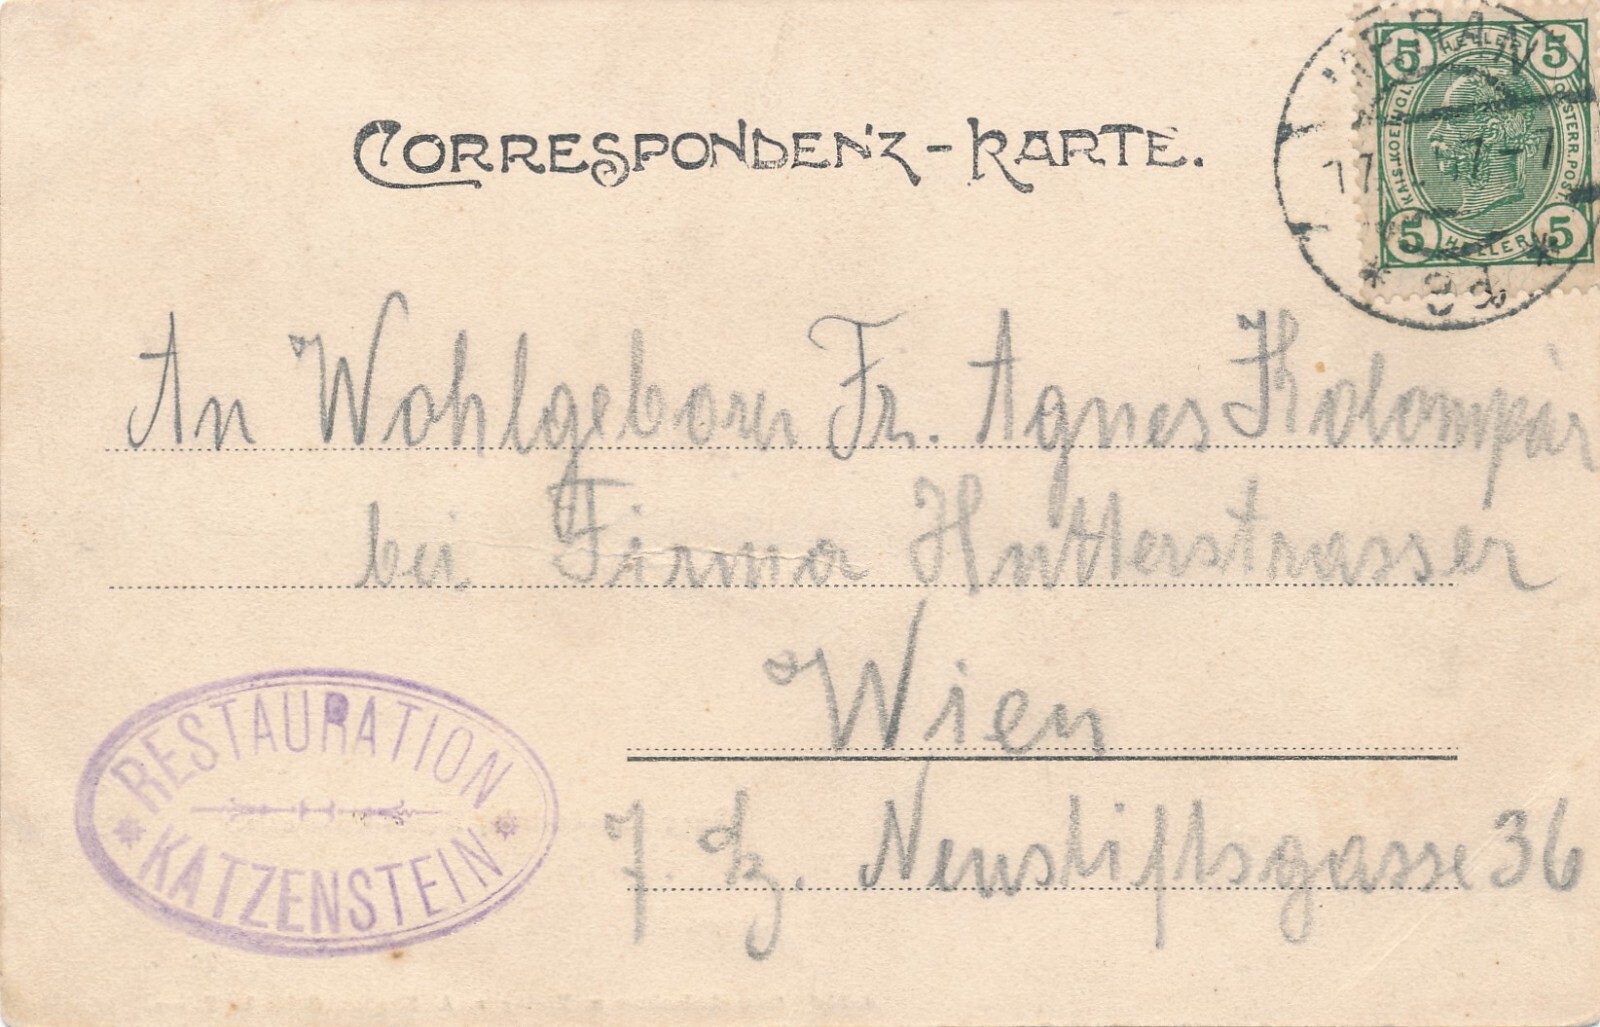 CORRESPONDENZ-KARTE.
MERAN
5 HELLER 5
KAIS. KOENIGL. OESTERR. POST.
5 HELLER 5
17
7-7
* *
An Wohlgeboren Fr. Agnes Kolompár
bei Firma Hutterstrasser
Wien
7. Bz. Neustiftgasse 36
RESTAURATION
* *
KATZENSTEIN